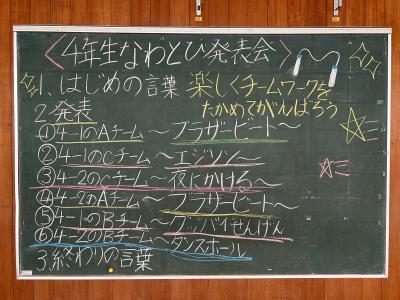 <4年生なわとび発表会>
1、はじめの言葉
楽しくチームワークを
たかめてがんばろう
2.発表
①4-1のAチーム〜ブラザービート〜
②4-1のCチーム〜エジソン〜
③4-2のCチーム〜夜にかける〜
④4-2のAチーム〜ブラザービート〜
⑤4-1のBチーム〜グッバイせんげん
⑥4-2のBチーム〜ダンスホール
3.終わりの言葉